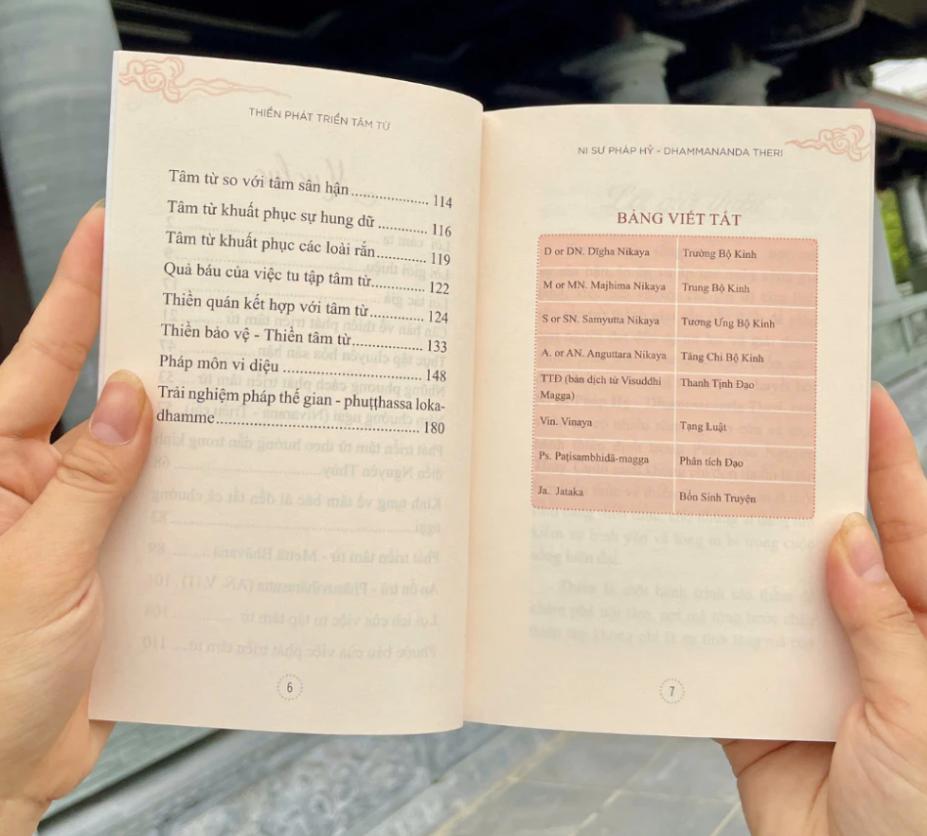 THIỀN PHÁT TRIỂN TÂM TỪ
Tâm từ so với tâm sân hận.................... 114
Tâm từ khuất phục sự hung dữ ............ 116
Tâm từ khuất phục các loài rắn............ 119
Quả báu của việc tu tập tâm từ............. 122
Thiền quán kết hợp với tâm từ............. 124
Thiền bảo vệ - Thiền tâm từ................. 133
Pháp môn vi diệu ................................. 148
Trải nghiệm pháp thế gian - phuṭṭhassa loka-
dhamme................................................ 180
6
NI SƯ PHÁP HỶ - DHAMMANANDA THERI
BẢNG VIẾT TẮT
D or DN. Dīgha Nikaya Trường Bộ Kinh
M or MN. Majhima Nikaya Trung Bộ Kinh
S or SN. Samyutta Nikaya Tương Ưng Bộ Kinh
A. or AN. Anguttara Nikaya Tăng Chi Bộ Kinh
TTĐ (bản dịch từ Visuddhi Thanh Tịnh Đạo
Magga)
Vin. Vinaya Tạng Luật
Ps. Paṭisambhidā-magga Phân tích Đạo
Ja. Jataka Bổn Sinh Truyện
7